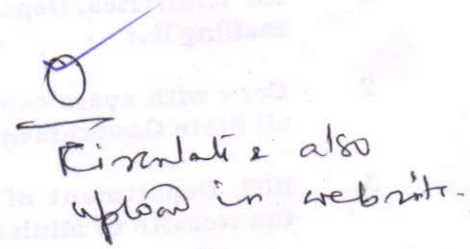 Circulate & also
upload in website.